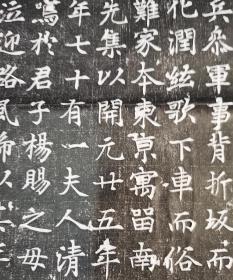 兵叅軍事背折坂而
化潤絃歌下車而俗
難家本東亰寓留南
先集以開元廿五年
年七十有一夫人清
鳴於君子楊賜之母
泣迎路風